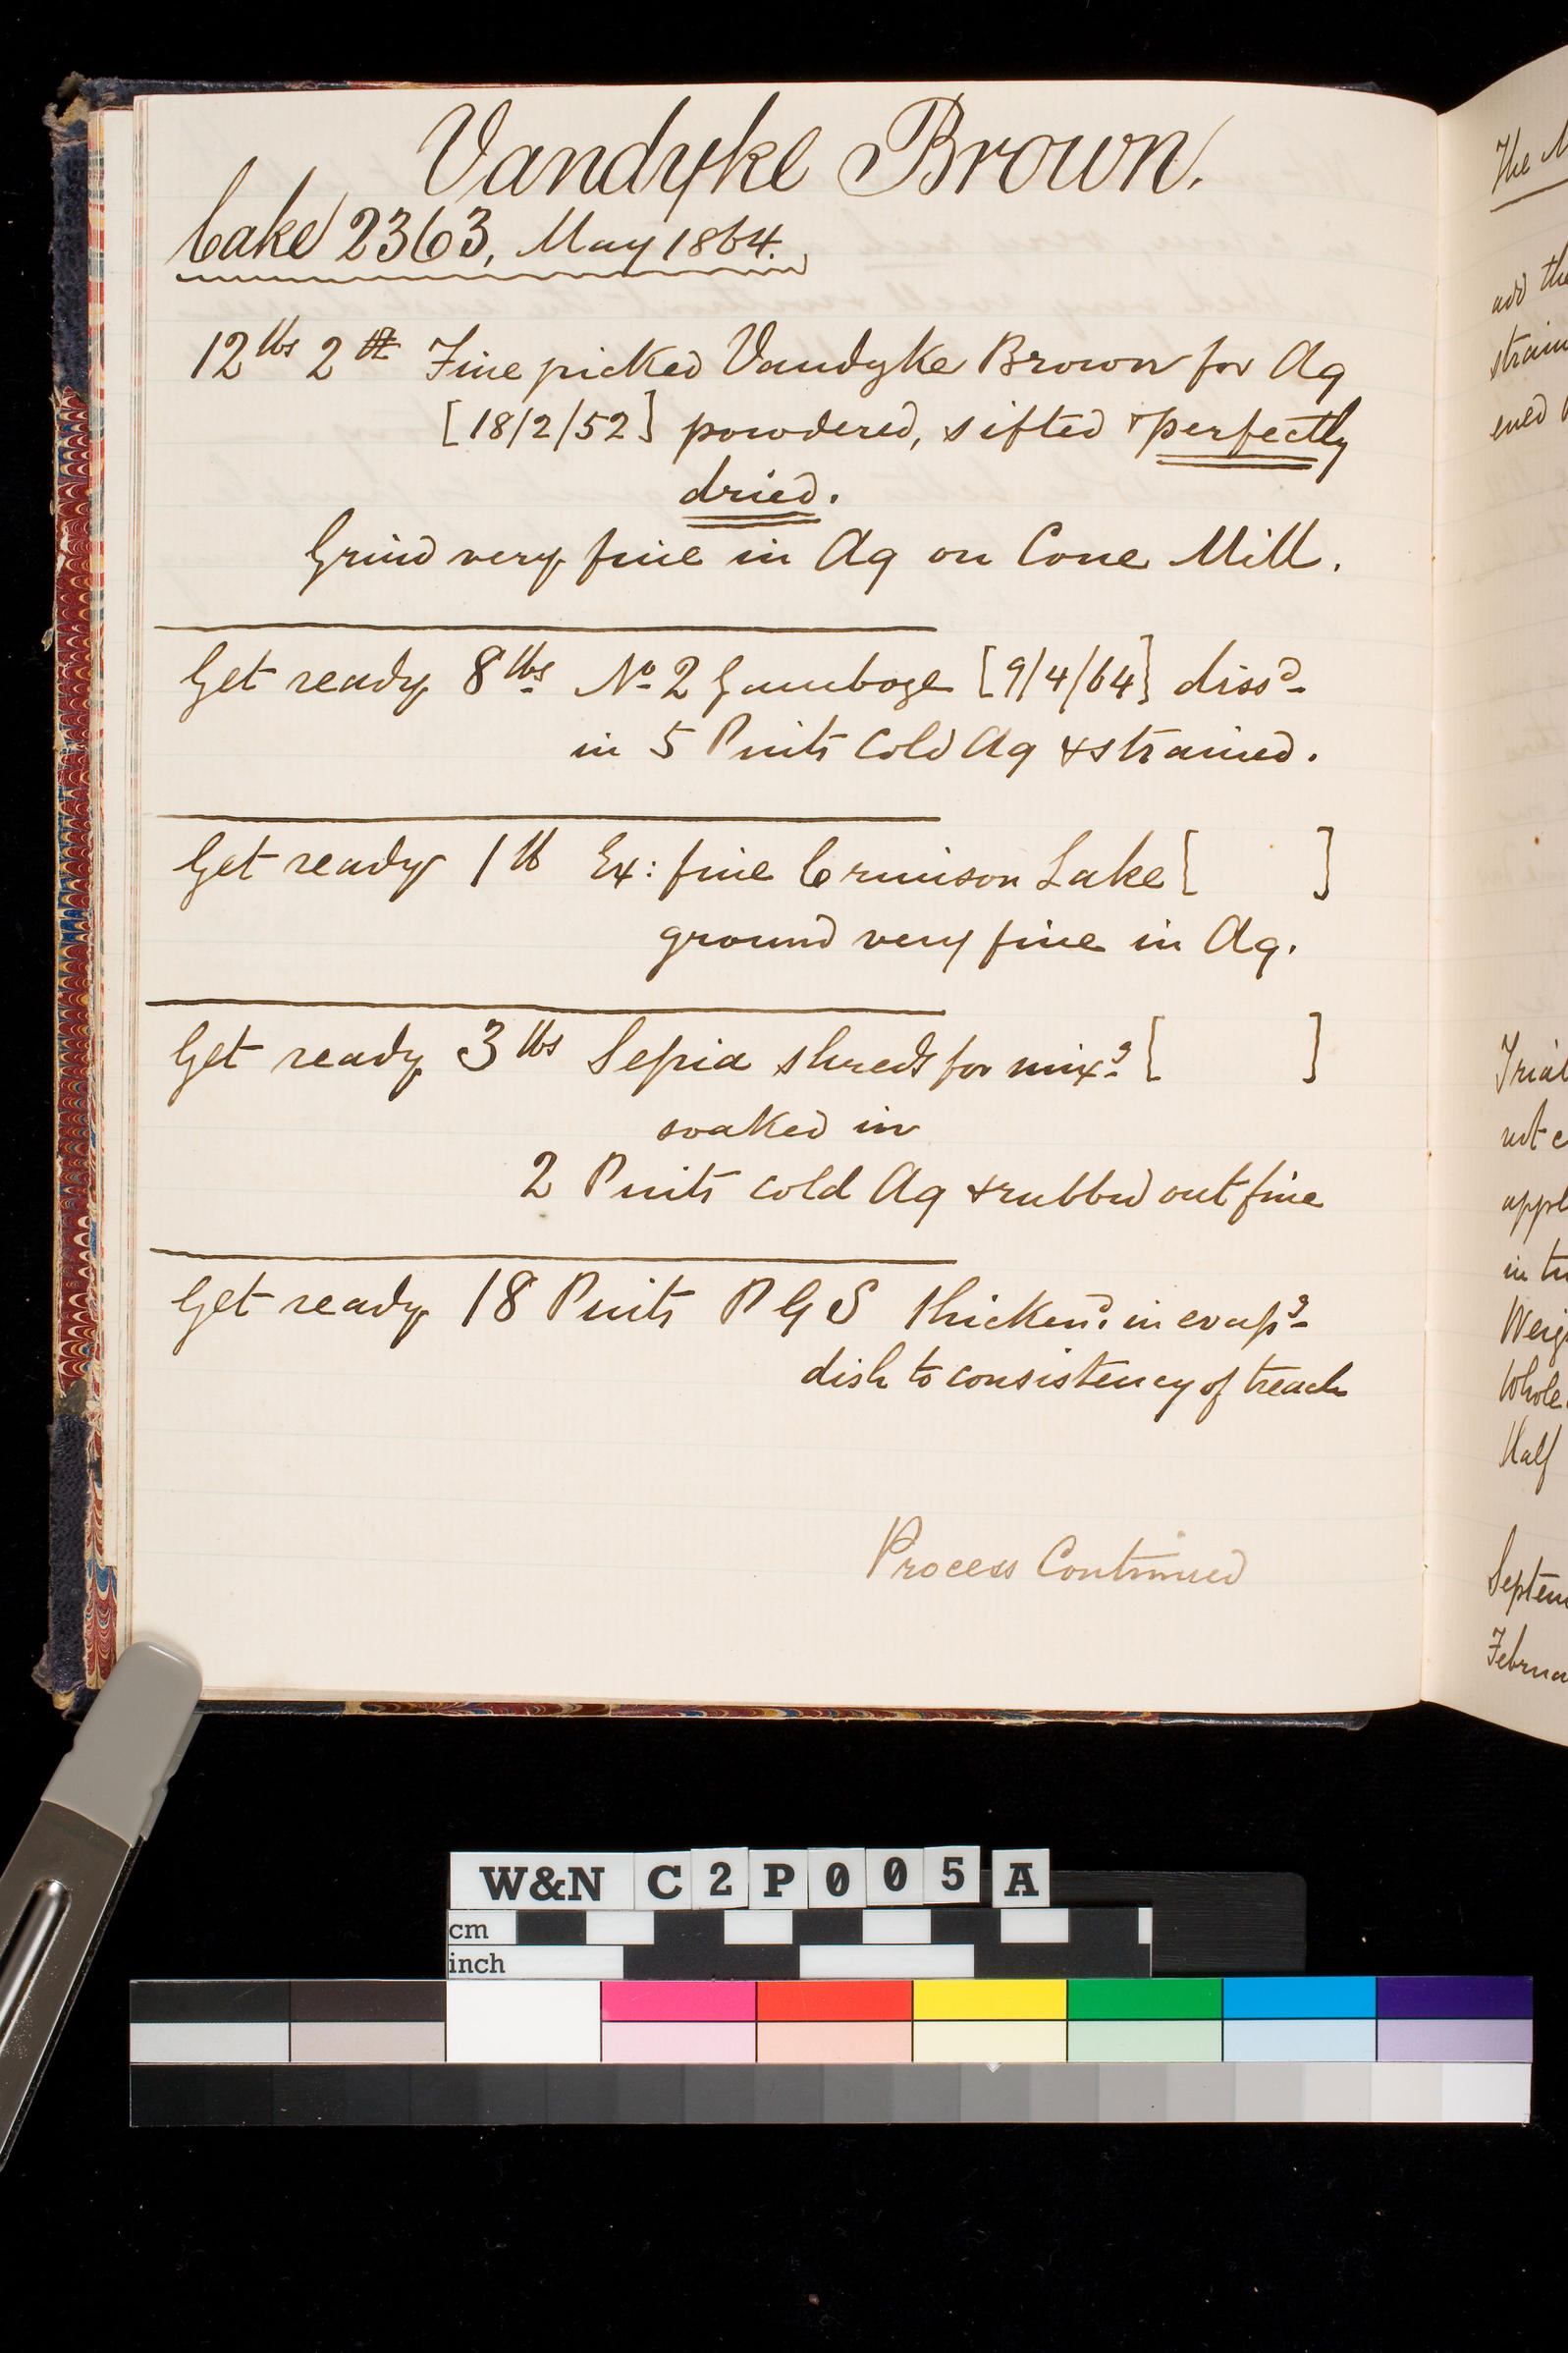 Vandyke Brown.
Cake 2363, May 1864.
12 lbs 2 lb Fine picked Vandyke Brown for Aq
[18/2/52] powdered, sifted & perfectly
dried.
Grind very fine in Aq on Cone Mill.
Get ready 8 lbs No 2 Gamboge [9/4/64] dissd
in 5 Pints Cold Aq & strained.
Get ready 1 lb Ex: fine Crimson Lake [ ]
ground very fine in Aq.
Get ready 3 lbs Sepia shreds for mixg [ ]
soaked in
2 Pints cold Aq & rubbed out fine
Get ready 18 Pints P G S thickend in evapg
dish to consistency of treacle
Process Continued
The
add the
strain
ened
Trial
not
appl
in
Weig
Whole
Half
Septem
Februa
W&N C2P005 A
cm
inch